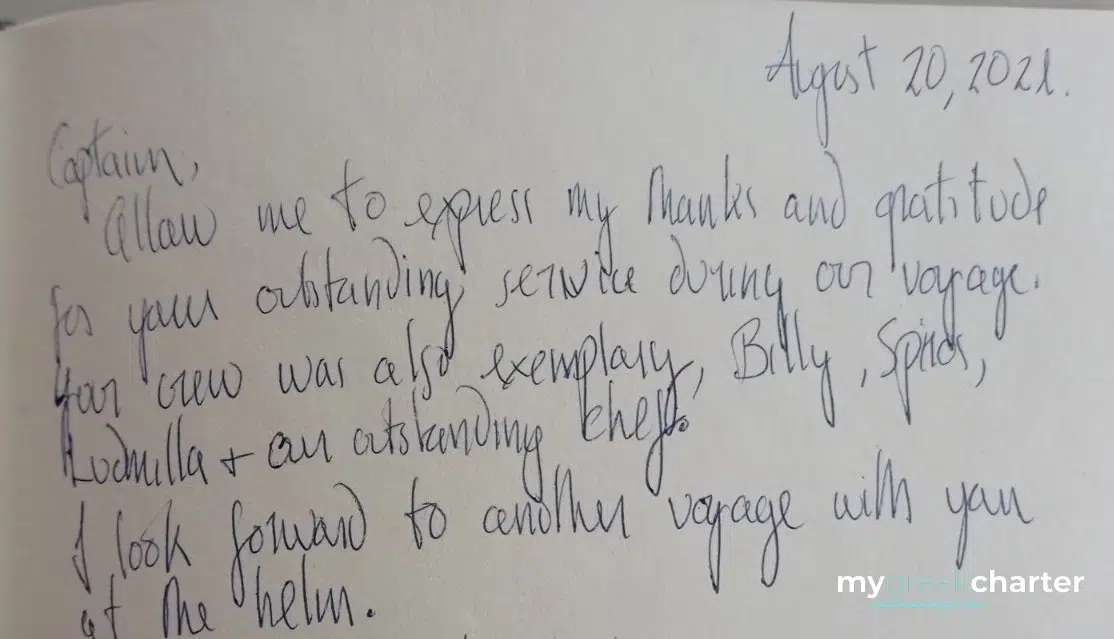 August 20, 2021.
Captain,
Allow me to express my thanks and gratitude
for your outstanding service during our voyage.
Your crew was also exemplary, Billy, Spiros,
Ludmilla + our outstanding chef.
I look forward to another voyage with you
at the helm.
mygreekcharter